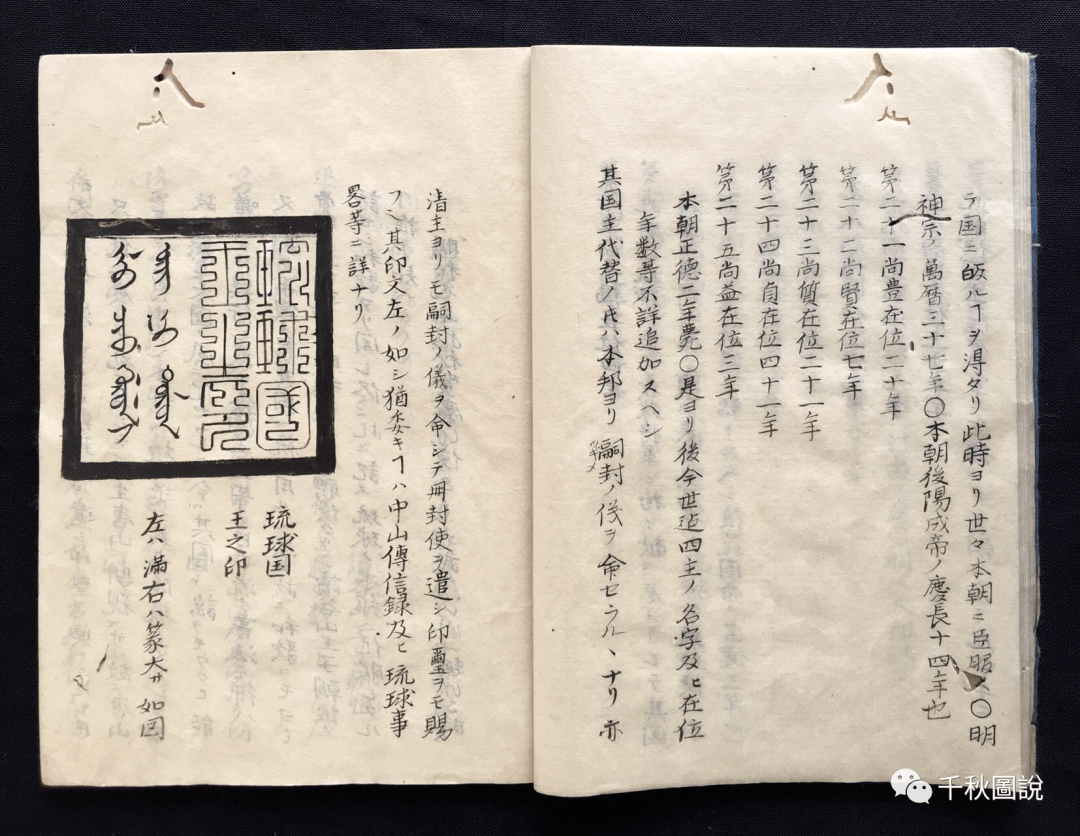 テ国ニ皈ルヿヲ淂タリ此時ヨリ世々本朝ニ臣服ス〇明
神宗ノ萬暦三十七年〇本朝後陽成帝ノ慶長十四年也
第二十一尚豊在位二十年
第二十二尚賢在位七年
第二十三尚質在位二十一年
第二十四尚貞在位四十一年
第二十五尚益在位三年
本朝正徳二年薨〇是ヨリ後今世迠四主ノ名字及ヒ在位
年数等不詳追加スヘシ
其国主代替ノ片ハ本邦ヨリ嗣封ノ儀ヲ命セラルヽナリ亦
清主ヨリモ嗣封ノ儀ヲ命シテ冊封使ヲ遣シ印璽ヲモ賜
フ也其印文左ノ如シ猶委キヿハ中山傳信録及ヒ琉球事
畧等ニ詳ナリ
琉球國
王之印
琉球国
王之印
左ハ満右ハ篆大サ如図
千秋圖說